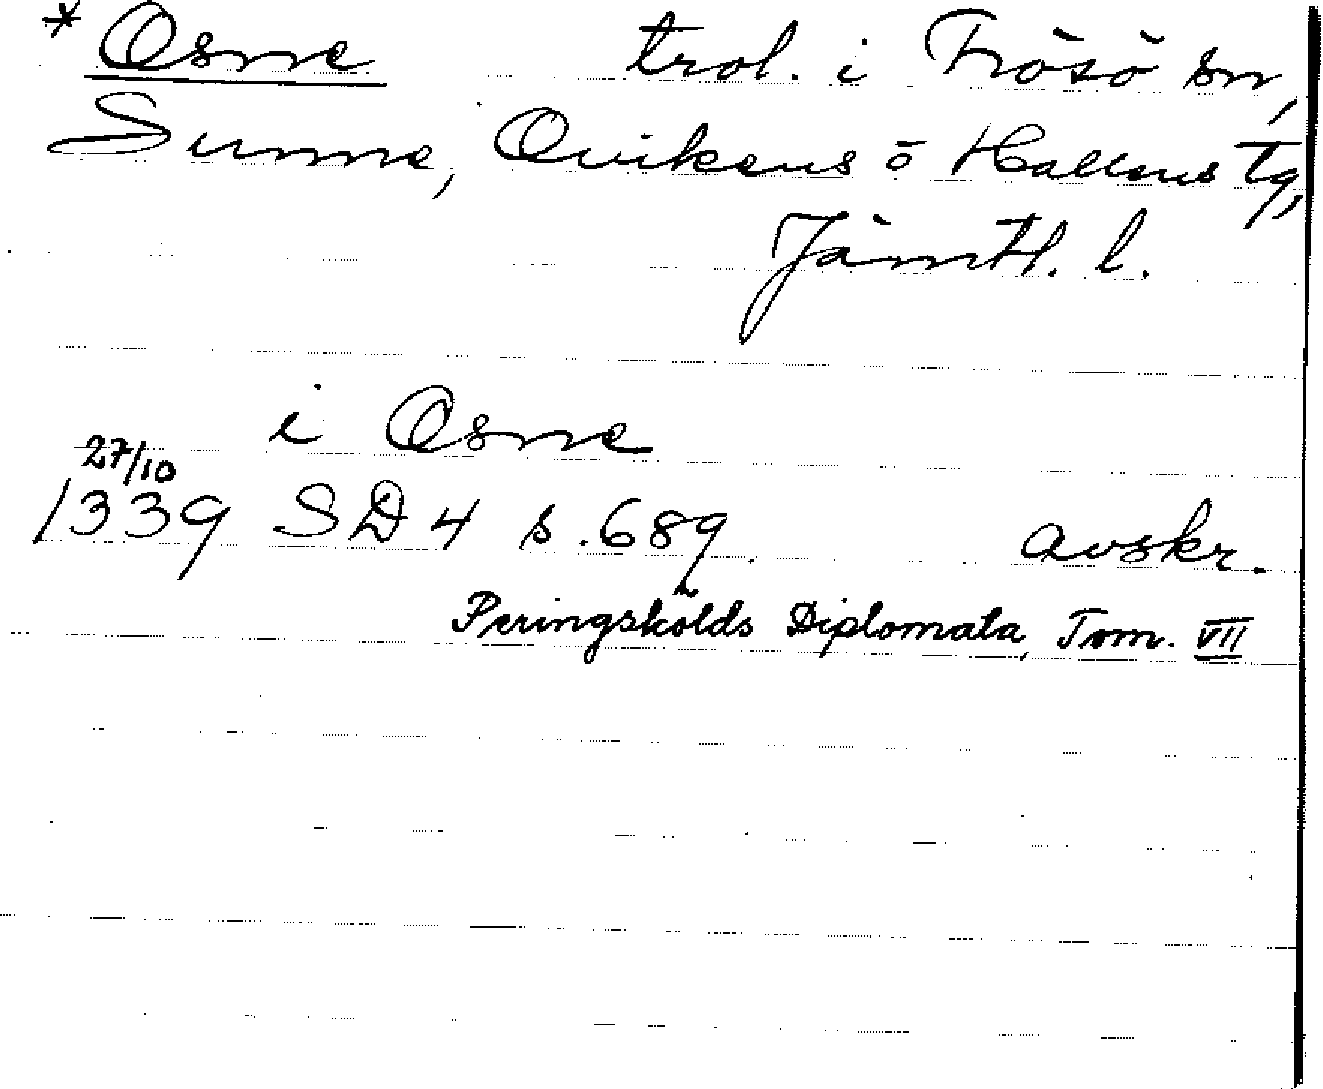 * Osne trol. i Frösö sn,
Sunne, Ovikens o Hallens tg,
Jämtl. l.
i Osne
27/10
1339 SD 4 s. 689. avskr.
Peringskölds Diplomata, Tom. VII